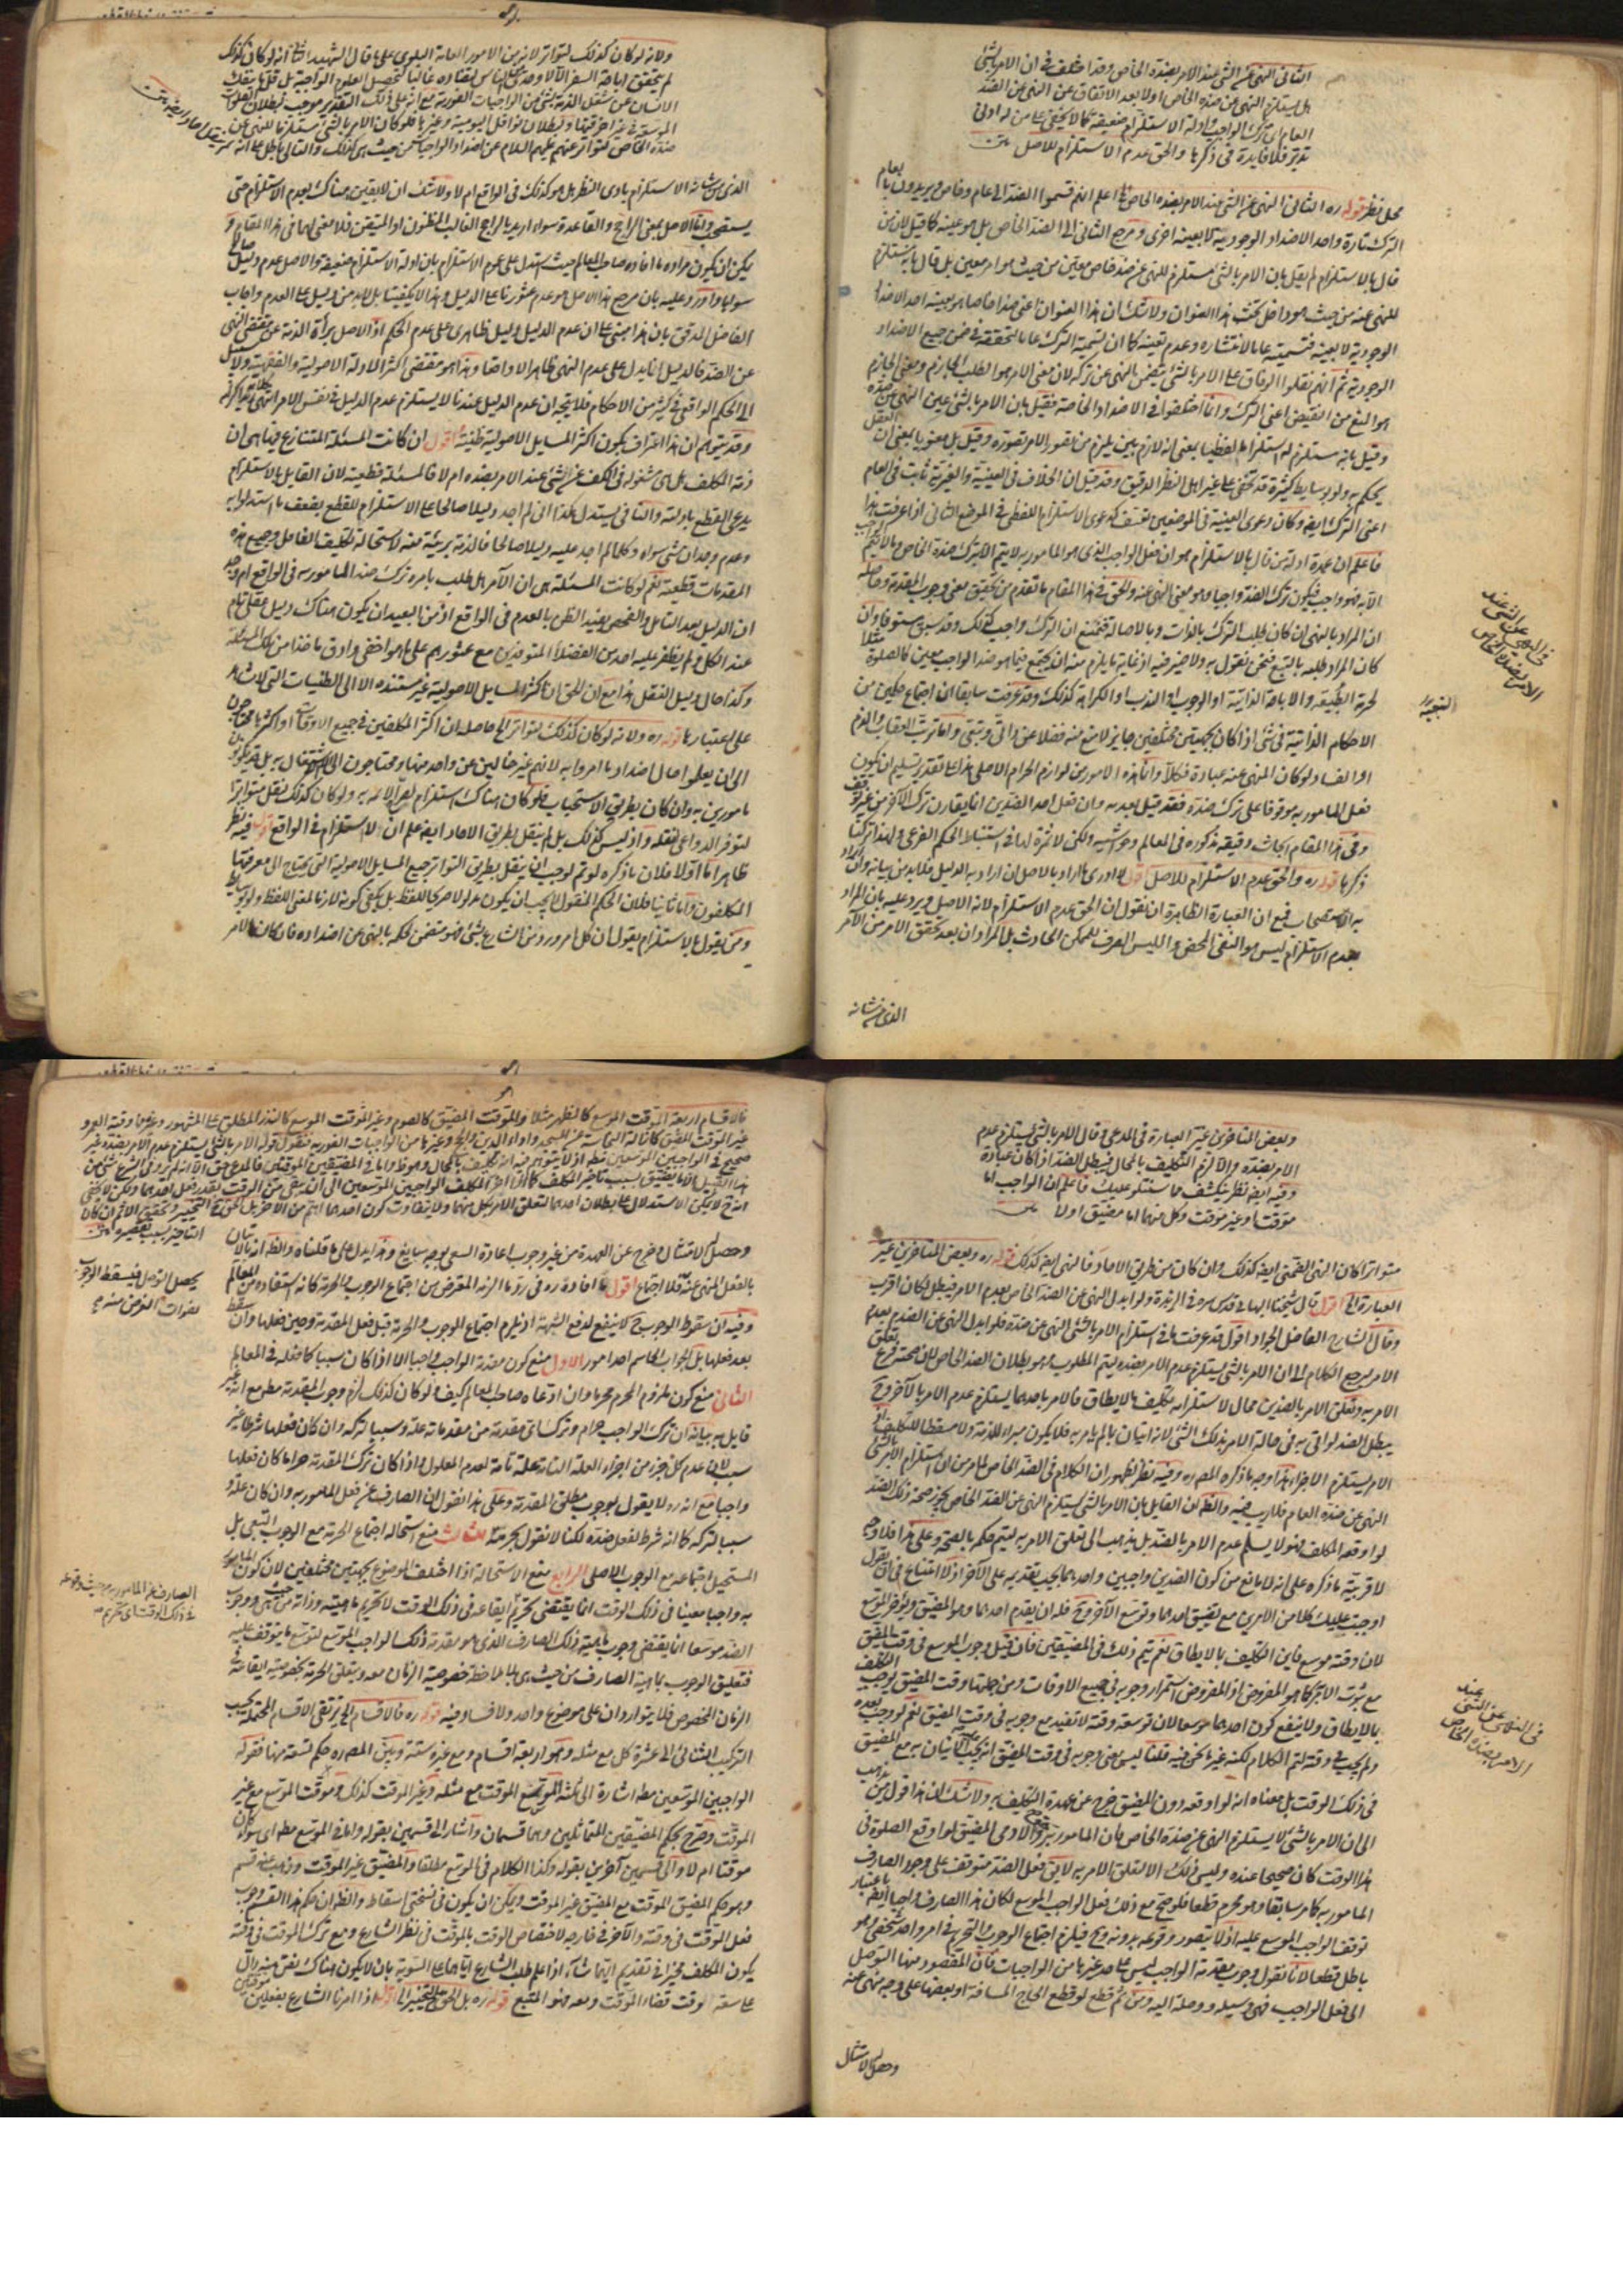 الثانى النهى عن الشئ عند الامر بضده الخاص وقد اختلف فى ان الامر بالشئ
هل يستلزم النهى عن ضده الخاص او لا بعد الاتفاق عن النهى عن الضد
العام اى ترك الواجب وادلة الاستلزام ضعيفة كما لا يخفى على من له ادنى
تدبر فلا فايدة فى ذكرها والحق عدم الاستلزام للاصل
محل نظر قوله ره الثانى النهى عن الشئ عند الامر بضده الخاص اعلم انهم قسموا الضد الى عام وخاص ويريدون بالعام
الترك تارة واحد الاضداد الوجودية لا بعينه اخرى و الثانى الى الضد الخاص بل هو عينه كما قيل لان من
قال بالاستلزام لم يقل بان الامر بالشئ مستلزم للنهى عن ضد خاص معين من حيث هو امر معين بل قال بانه يستلزم
للنهى عنه من حيث هو داخل تحت هذا العنوان ولا شك ان هذا العنوان اعنى ضدا خاصا هو بعينه احد الاضداد
الوجودية لا بعينه فتسميته عاما لانتشاره وعدم تعينه كما ان تسمية الترك عاما لتحققه فى ضمن جميع الاضداد
الوجودية ثم انهم نقلوا الوفاق على الامر بالشئ يتضمن النهى عن تركه لان معنى الامر هو الطلب الجازم ومعنى الجازم
هو المانع من النقيض اعنى الترك وانما اختلفوا فى الاضداد الخاصة فقيل بان الامر بالشئ عين النهى عن ضده
وقيل بانه مستلزم له استلزاما لفظيا بمعنى انه لازم بين يلزم من تصور الامر تصوره وقيل بل معنويا بمعنى ان العقل
يحكم به ولو بوسايط كثيرة قد تخفى على غير اهل النظر الدقيق وقد قيل ان الخلاف فى العينية والغيرية ثابت فى العام
اعنى الترك ايضا وكان دعوى العينية فى الموضعين تعسف كدعوى الاستلزام اللفظى فى الموضع الثانى اذا عرفت هذا
فاعلم ان عمدة ادلة من قال بالاستلزام هو ان فعل الواجب الذى هو المأمور به لا يتم الا بترك ضده الخاص وما لا يتم الواجب
الا به فهو واجب فيكون ترك الضد واجبا وهو معنى النهى عنه والحق فى هذا المقام ما تقدم من تحقيق معنى وجوب المقدمة وحاصله
ان المراد بالنهى ان كان طلب الترك بالذات وبالاصالة فنمنع ان الترك واجب كذلك وقد سبق مستوفا وان
كان المراد طلبه بالتبع فنحن نقول به ولا ضير فيه اذ غاية ما يلزم منه ان يجتمع فيما هو ضد الواجب معين كالصلوة مثلا
الاحكام الذاتية فى شئ اذا كان بجهتين مختلفتين جايز لا منع منه فضلا عن ذاتى وتبعى واما ترتب العقاب والذم
او الفساد لو كان المنهى عنه عبادة فكلا وانما هذه الامور من لوازم الحرام الاصلى هذا على تقدير تسليم ان يكون
فعل المأمور به موقوفا على ترك ضده فقد قيل بعدمه وان فعل احد الضدين انما يقارن ترك الآخر من غير توقف
وفى هذا المقام ابحاث دقيقة مذكورة فى المعالم وحواشيه ولكن لا ثمرة لها فى استنباط الحكم الفرعى ولهذا تركنا
ذكرها قوله ره والحق عدم الاستلزام للاصل اقول لا ادرى ما اراد بالاصل ان اراد به الدليل فلا بد من بيانه وان اراد
به الاستصحاب فمع ان العبارة الظاهرة ان نقول ان الحق عدم الاستلزام لانه الاصل ويرد عليه بان المراد
بعدم الاستلزام ليس هو النفى المحض والليس الصرف للممكن الحادث بل المراد ان بعد تحقق الامر من الآمر
الذى من شانه
فى النهى عن الشئ عند
الامر بضده الخاص
ولانه لو كان كذلك لتواتر لانه من الامور العامة البلوى على ما قال الشهيد الثانى انه لو كان كذلك
لم يتحقق اباحة السفر الا لاوحدى الناس لمضادته غالبا لتحصيل العلوم الواجبة بل قل ما ينفك
الانسان عن شغل الذمة بشئ من الواجبات الفورية مع انه على ذلك التقدير موجب لبطلان الصلوة
الموسعة فى غير آخر وقتها ولبطلان نوافل اليومية وغيرها فلو كان الامر بالشئ مستلزما للنهى عن
ضده الخاص لتواتر عنهم عليهم السلام عن اضداد الواجبات من حيث هى كذلك والتالى باطل على انه لم ينقل آحاد ايضا
الذى من شانه الاستلزام بادى النظر هل هو كذلك فى الواقع ام لا ولا شك ان لا يقين هناك بعدم الاستلزام حتى
يستصحب واما الاصل بمعنى الراجح والقاعدة وسواء اريد بالراجح الغالب المظنون او المتيقن فلا معنى لهما فى هذا المقام و
يمكن ان يكون مراده ما افاده صاحب المعالم حيث استدل على عدم الاستلزام بان ادلة الاستلزام ضعيفة والاصل عدم دليل صالح
سواها واورد عليه بان مرجع هذا الاصل هو عدم عثورنا على الدليل وهذا لا يكفينا بل لا بد من دليل على العدم واجاب
الفاضل المدقق بان هذا مبنى على ان عدم الدليل دليل ظاهرى على عدم الحكم اذ الاصل براءة الذمة عن مقتضى النهى
عن الضد فالدليل انما يدل على عدم النهى ظاهرا لا واقعا وهذا هو مقتضى اكثر الادلة الاصولية والفقهية ولا سبيل
الى الحكم الواقعى فى كثير من الاحكام فلا يتجه ان عدم الدليل عندنا لا يستلزم عدم الدليل فى نفس الامر انتهى
وقد يتوهم ان هذا اعتراف بكون اكثر المسايل الاصولية ظنية اقول ان كانت المسئلة المتنازع فيها هى ان
ذمة المكلف هل هى مشغولة فى الكف عن الشئ عند الامر بضده ام لا فالمسئلة قطعية لان القايل بالاستلزام
يدعى القطع بادلته والنافى يستدل هكذا انى لم اجد دليلا صالحا على الاستلزام للقطع بضعف ما استدلوا به
وعدم وجدان شئ سواه وكلما لم اجد عليه دليلا صالحا فالذمة بريئة منه لاستحالة تكليف الغافل وجميع هذه
المقدمات قطعية نعم لو كانت المسئلة هى ان الآمر هل طلب بامره ترك ضد المأمور به فى الواقع ام لا
ان الدليل بعد التأمل والفحص يفيد الظن بالعدم فى الواقع اذ من البعيد ان يكون هناك دليل عقلى تام
عند الكل ولم يظفر عليه احد من الفضلاء المتوقدين مع عثورهم على ما هو اخفى وادق ماخذا من تلك المسئلة
وكذا حال دليل النقل هذا مع ان الحق ان اكثر المسايل الاصولية غير مستندة الا الى الظنيات التى لا شاهد
على اعتبارها قوله ره ولانه لو كان كذلك لتواتر الخ حاصله ان اكثر المكلفين فى جميع الاوقات او اكثرها محتاجون
الى ان يعلموا حال اضداد ما امروا به لانهم غير خالين عن واحد منها ومحتاجون الى الاشتغال به بل قد يكونون
مامورين به وان كان بطريق الاستحباب فلو كان هناك استلزام لصرح الائمه به ولو كان كذلك لنقل متواترا
لتوفر الدواعى لنقله واذ ليس كذلك بل لم ينقل بطريق الآحاد ايضا علم ان لا استلزام فى الواقع اقول فيه نظر
ظاهر اما اولا فلان ما ذكره لو تم لوجب ان ينقل بطريق التواتر جميع المسايل الاصولية التى يحتاج الى معرفتها
المكلفون واما ثانيا فلان الحكم المنقول لا يجب ان يكون مدلولا صريحا للفظ بل يكفى كونه لازما لمعنى اللفظ ولو بوسايط
ومن يقول بالاستلزام يقول ان كل امر ورد من الشارع بشئ فهو متضمن لحكمه بالنهى عن اضداده فان كان الامر
وبعض المتاخرين غير العبارة فى المدعى فى قال الامر بالشئ يستلزم عدم
الامر بضده والا لزم التكليف بالمحال فيبطل الضد اذا كان عبادة
وفيه ايضا نظر ينكشف مما سنتلو عليك فاعلم ان الواجب اما
موقت او غير موقت وكل منهما اما مضيق او لا
متواترا كان النهى الضمنى ايضا كذلك وان كان من طريق الآحاد فالنهى ايضا كذلك قوله ره وبعض المتاخرين غير
العبارة الخ اقول قال شيخنا البهائى قدس سره فى الزبدة ولو ابدل النهى عن الضد الخاص بعدم الامر فيبطل لكان اقرب
وقال الشارح الفاضل الجواد اقول قد عرفت ما فى استلزام الامر بالشئ النهى عن ضده فلو ابدل النهى عن الضد بعدم
الامر يرجع الكلام الى ان الامر بالشئ يستلزم عدم الامر بضده ليتم المطلوب وهو بطلان الضد الخاص لان صحته فرع تعلق
الامر به وتعلق الامر بالضدين محال لاستلزامه تكليف ما لا يطاق فالامر باحدهما يستلزم عدم الامر بالآخر وح
يبطل الضد لو اتى به فى حالة الامر بذلك الشئ لانه اتيان بما لم يؤمر به فلا يكون مبرئا للذمة ولا مسقطا للتكليف اذ
الامر يستلزم الاجزاء هذا وجه ما ذكره المصره وفيه نظر لظهور ان الكلام فى الضد الخاص لما مر من ان استلزام الامر بالشئ
النهى عن ضده العام فلا ريب فيه والظ ان القايل بان الامر بالشئ لا يستلزم النهى عن الضد الخاص يجوز صحة ذلك الضد
لو اوقعه المكلف فهو لا يسلم عدم الامر بالضد بل يذهب الى تعلق الامر به ليتم حكمه بالصحة وعلى هذا فلا وجه
لاقربية ما ذكره على انه لا مانع من كون الضدين واجبين واحدهما يجب تقديمه على الآخر اذ لا امتناع فى ان يقول
اوجبت عليك كلا من الامرين مع تضيق احدهما وتوسع الآخر وح فله ان يقدم احدهما وهو المضيق ويؤخر الموسع
لان وقته موسع فاين التكليف بما لا يطاق نعم يتم ذلك فى المضيقين فان قيل وجوب الموسع فى وقت المضيق
مع ثبوت الآخر كما هو المفروض اذ المفروض استمرار وجوبه فى جميع الاوقات ومن جملتها وقت المضيق يوجب التكليف
بما لا يطاق ولا ينفع كون احدهما موسعا لان توسعة وقته لا تفيد مع وجوبه فى وقت المضيق نعم لو وجب بعده
ولم يجب فى وقته لتم الكلام لكنه غير ما نحن فيه قلنا ليس معنى وجوبه فى وقت المضيق انه يجب الاتيان به مع المضيق
فى ذلك الوقت بل معناه انه لو اوقعه دون المضيق خرج عن عهدة التكليف به ولا شك ان هذا قول من ذهب
الى ان الامر بالشئ لا يستلزم النهى عن ضده الخاص فان المأمور لو اوقع الصلوة فى
هذا الوقت كان صحيحا عنده وليس ذلك الا لتعلق الامر به لا يق فعل الضد متوقف على وجود الصارف
المأمور به كما مر سابقا وهو محرم قطعا فلو صح مع ذلك فعل الواجب الموسع لكان هذا الصارف واجبا ايضا باعتبار
توقف الواجب الموسع عليه اذ لا يتصور وقوعه بدونه وح فيلزم اجتماع الوجوب والتحريم فى امر واحد شخصى وهو
باطل قطعا لانا نقول وجوب مقدمة الواجب ليس على حد غيرها من الواجبات فان المقصود منها التوصل
الى فعل الواجب فهى وسيلة ووصلة اليه ومن ثم قطع لو قطع الحاج المسافة او بعضها على وجه نهى عنه
وحصل الامتثال
فى النهى عن الشئ عند
الامر بضده الخاص
فالاقسام اربعة الموقت الموسع كالظهر مثلا والموقت المضيق كالصوم وغير الموقت الموسع كالنذر المطلق على المشهور وغيرها وقته العمر و
غير الموقت المضيق كازالة النجاسة عن المسجد واداء الدين والحج وغيرها من الواجبات الفورية فنقول قوله الامر بالشئ يستلزم عدم الامر بضده غير
صحيح فى الواجبين الموسعين مطلقا اذ لا يتوهم فيه انه تكليف بالمحال وهو ظ واما فى المضيقين الموقتين فالمدعى حق الا انه لم يرد فى الشرع شئ من
هذا القبيل الا ما تضيق بسبب تاخير المكلف كما اذا اخر المكلف الواجبين الموسعين الى ان بقى من الوقت بقدر فعل احدهما ولكن لا يخفى
انه ح لا يمكن الاستدلال على بطلان احدهما لتعلق الامر بكل منهما ولا يتفاوت كون احدهما اهم من الآخر بل الحق ح التخيير وتحقق الاثم ان كان
التاخير بسبب تقصيره
وحصل الامتثال وخرج عن العهدة من غير وجوب اعادة السعى بوجه سايغ وهذا يدل على ما قلناه والظ انه بالاتيان
بالفعل المنهى عنه فلا اجتماع اقول ما افاده ره فى رد ما الزمه المعترض من اجتماع الوجوب والحرمة كانه استفاده من المعالم
وفيه ان سقوط الوجوب ح لا ينفع لدفع الشبهة اذ يلزم اجتماع الوجوب والحرمة قبل فعل المقدمة وحين فعلها وان سقط
بعد فعلها بل الجواب الحاسم احد امور الاول منع كون مقدمة الواجب واجبا الا اذا كان سببا كما فصله فى المعالم
الثانى منع كون ملزوم المحرم محرما وان ادعاه صاحب المعالم كيف ولو كان كذلك لزم وجوب المقدمة مطلقا مع انه غير
قايل به بيانه ان ترك الواجب حرام وترك اى مقدمة من مقدماته علة وسببا لتركه وان كان فعلها شرطا غير
سبب لان عدم كل جزء من اجزاء العلة التامة علة تامة لعدم المعلول واذا كان ترك المقدمة حراما كان فعلها
واجبا مع انه ره لا يقول بوجوب مطلق المقدمة وعلى هذا نقول ان الصارف عن فعل المأمور به وان كان علة و
سببا لتركه كما انه شرط لفعل ضده لكنا لا نقول بحرمته الثالث منع استحالة اجتماع الحرمة مع الوجوب التبعى بل
المستحيل اجتماعه مع الوجوب الاصلى الرابع منع الاستحالة اذا اختلف الموضوع بجهتين مختلفتين لان كون المأمور
به واجبا معينا فى ذلك الوقت انما يقتضى تحريم ايقاعه فى ذلك الوقت لا تحريم ماهيته وذاته من حيث هى ووجوب
الضد موسعا انما يقتضى وجوب ماهية ذلك الصارف الذى هو مقدمة ذلك الواجب الموسع لتوسع ما يتوقف عليه
فتعليق الوجوب بماهية الصارف من حيث هى بلا ملاحظة خصوصية الزمان معه ويتعلق الحرمة بخصوصية ايقاعه فى
الزمان المخصوص فلا يتواردان على موضوع واحد ولا فساد فيه قوله ره فالاقسام الخ يرتقى الاقسام المحتملة بحسب
التركيب الثنائى الى عشرة كل مع مثله وهو اربعة اقسام ومع غيره ستة وبين المصره حكم تسعة منها فقوله
الواجبين الموسعين مطلقا اشارة الى ثلثة الموسع الموقت مع مثله وغير الموقت كذلك وموقت الموسع مع غير
الموقت وصرح بحكم المضيقين المتماثلين وهما قسمان واشار الى قسمين بقوله واما فى الموسع مطلقا اى سواء كان
موقتا ام لا والى قسمين آخرين بقوله وكذا الكلام فى الموسع مطلقا والمضيق غير الموقت وذهب عنه قسم
وهو حكم المضيق الموقت مع المضيق غير الموقت ويمكن ان يكون فى نسختى اسقاط والظ ان حكم هذا القسم وجوب
فعل الموقت فى وقته والآخر فى خارجه لاختصاص الوقت بالموقت فى نظر الشارع ومع ترك الموقت فى وقته
يكون المكلف مخيرا فى تقديم ايهما شاء اذا علم طلب الشارع اياهما على السوية بان لا يكون هناك نص دال
على سعة وقت قضاء الموقت ومعه فهو المتبع قوله ره بل الحق ح التخيير الخ اقول اذا امرنا الشارع بفعلين
يحصل التوصل فيسقط الوجوب
لفوات الغرض منه
الصارف عن المأمور به من حيث وقوعه
فى ذلك الوقت اى تحريم